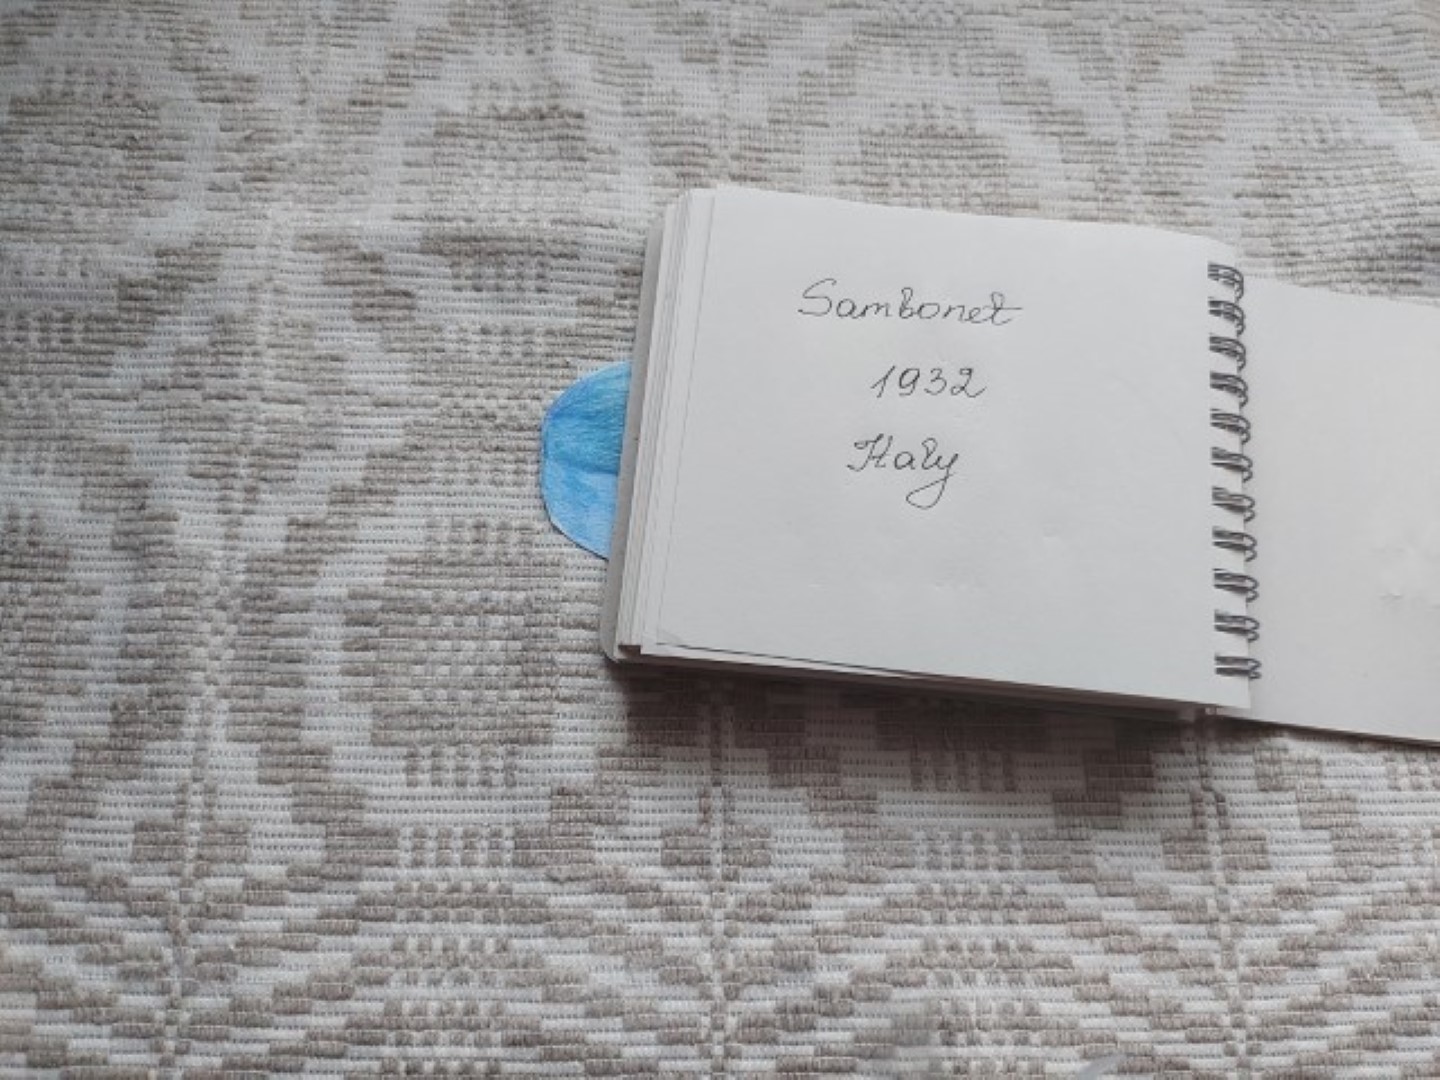 Sambonet
1932
Italy